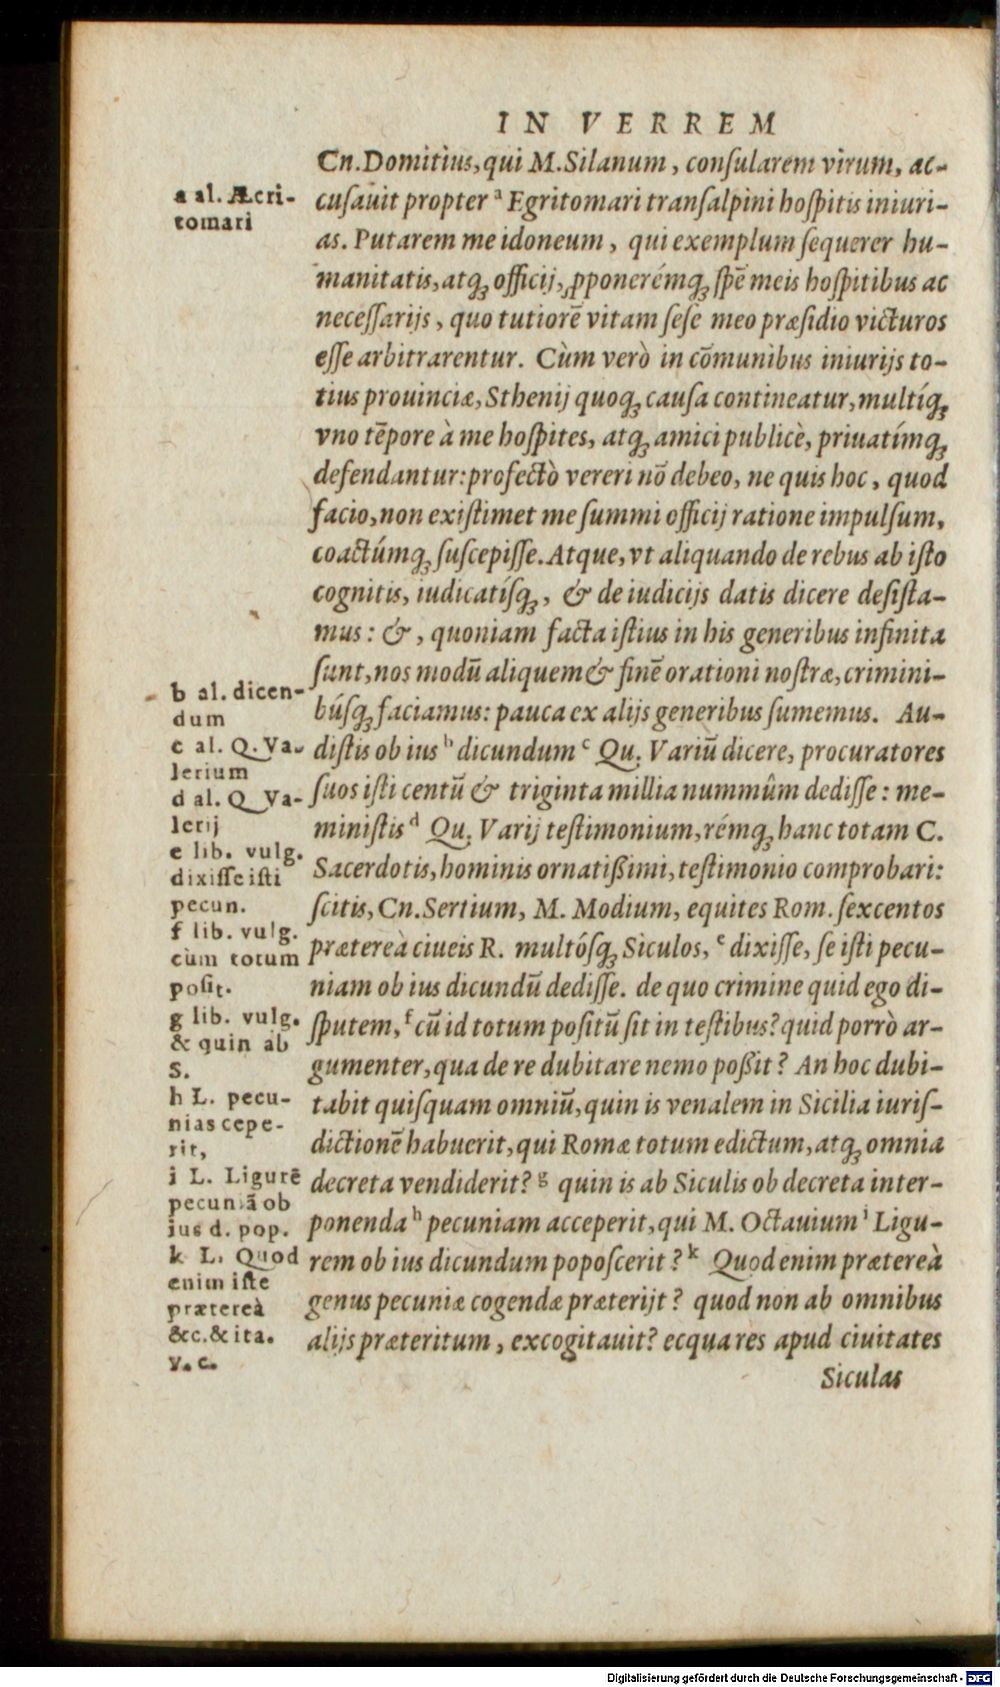 IN VERREM
Cn.Domitius, qui M.Silanum, conſularem virum, ac-
cuſauit propter ᵃ Egritomari tranſalpini hoſpitis iniuri-
as. Putarem me idoneum, qui exemplum ſequerer hu-
manitatis, atq́ꝫ officij, ꝓponerémqꝫ ſpē meis hoſpitibus ac
neceſſarijs, quo tutiorē vitam ſeſe meo præſidio victuros
eſſe arbitrarentur. Cùm verò in cōmunibus iniurijs to-
tius prouinciæ, Sthenij quoqꝫ cauſa contineatur, multíqꝫ
vno tēpore à me hoſpites, atqꝫ amici publicè, priuatímqꝫ
defendantur: profectò vereri nō debeo, ne quis hoc, quod
facio, non exiſtimet me ſummi officij ratione impulſum,
coactúmqꝫ ſuſcepiſſe. Atque, vt aliquando de rebus ab iſto
cognitis, iudicatíſqꝫ, & de iudicijs datis dicere deſiſta-
mus: &, quoniam facta iſtius in his generibus infinita
ſunt, nos modū aliquem & finē orationi noſtræ, crimini-
búſqꝫ faciamus: pauca ex alijs generibus ſumemus. Au-
diſtis ob ius ᵇ dicundum ᶜ Qu. Variū dicere, procuratores
ſuos iſti centū & triginta millia nummûm dediſſe: me-
miniſtis ᵈ Qu. Varij teſtimonium, rémqꝫ hanc totam C.
Sacerdotis, hominis ornatißimi, teſtimonio comprobari:
ſcitis, Cn.Sertium, M. Modium, equites Rom. ſexcentos
prætereà ciueis R. multóſqꝫ Siculos, ᵉ dixiſſe, ſe iſti pecu-
niam ob ius dicundū dediſſe. de quo crimine quid ego di-
ſputem, ᶠ cū id totum poſitū ſit in teſtibus? quid porrò ar-
gumenter, qua de re dubitare nemo poßit? An hoc dubi-
tabit quiſquam omniū, quin is venalem in Sicilia iuriſ-
dictionē habuerit, qui Romæ totum edictum, atqꝫ omnia
decreta vendiderit? ᵍ quin is ab Siculis ob decreta inter-
ponenda ʰ pecuniam acceperit, qui M. Octauium ⁱ Ligu-
rem ob ius dicundum popoſcerit? ᵏ Quod enim prætereà
genus pecuniæ cogendæ præterijt? quod non ab omnibus
alijs præteritum, excogitauit? ecqua res apud ciuitates
Siculas
a al. Æcri-
tomari
b al. dicen-
dum
c al. Q. Va-
lerium
d al. Q Va-
lerij
e lib. vulg.
dixiſſe iſti
pecun.
f lib. vulg.
cùm totum
poſit.
g lib. vulg.
& quin ab
S.
h L. pecu-
nias cepe-
rit,
i L. Ligurē
pecuniā ob
ius d. pop.
k L. Quod
enim iſte
prætereà
&c. & ita.
v. c.
Digitalisierung gefördert durch die Deutsche Forschungsgemeinschaft - DFG